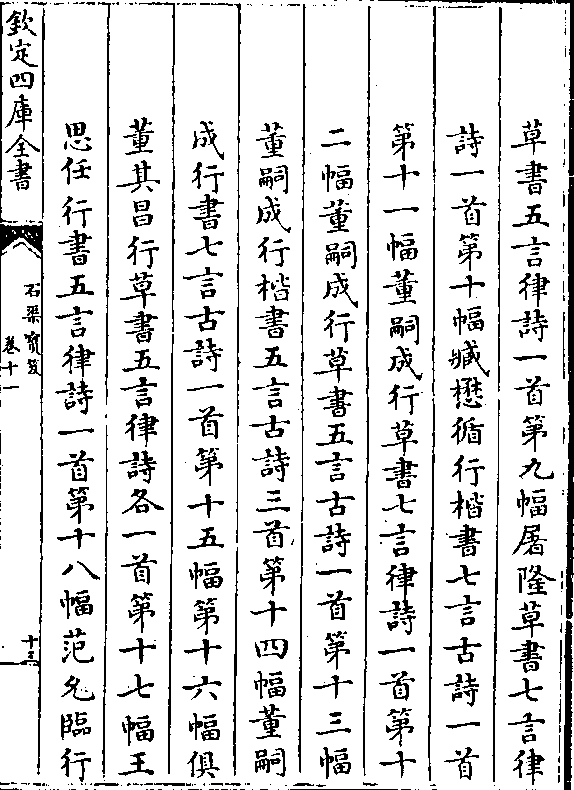 草書五言律詩一首第九幅屠隆草書七言律
詩一首第十幅臧懋循行楷書七言古詩一首
第十一幅董嗣成行草書七言律詩一首第十
二幅董嗣成行草書五言古詩一首第十三幅
董嗣成行楷書五言古詩三首第十四幅董嗣
成行書七言古詩一首第十五幅第十六幅俱
董其昌行草書五言律詩各一首第十七幅王
思任行書五言律詩一首第十八幅范允臨行
欽定四庫全書
石渠寳笈
卷十一
十三